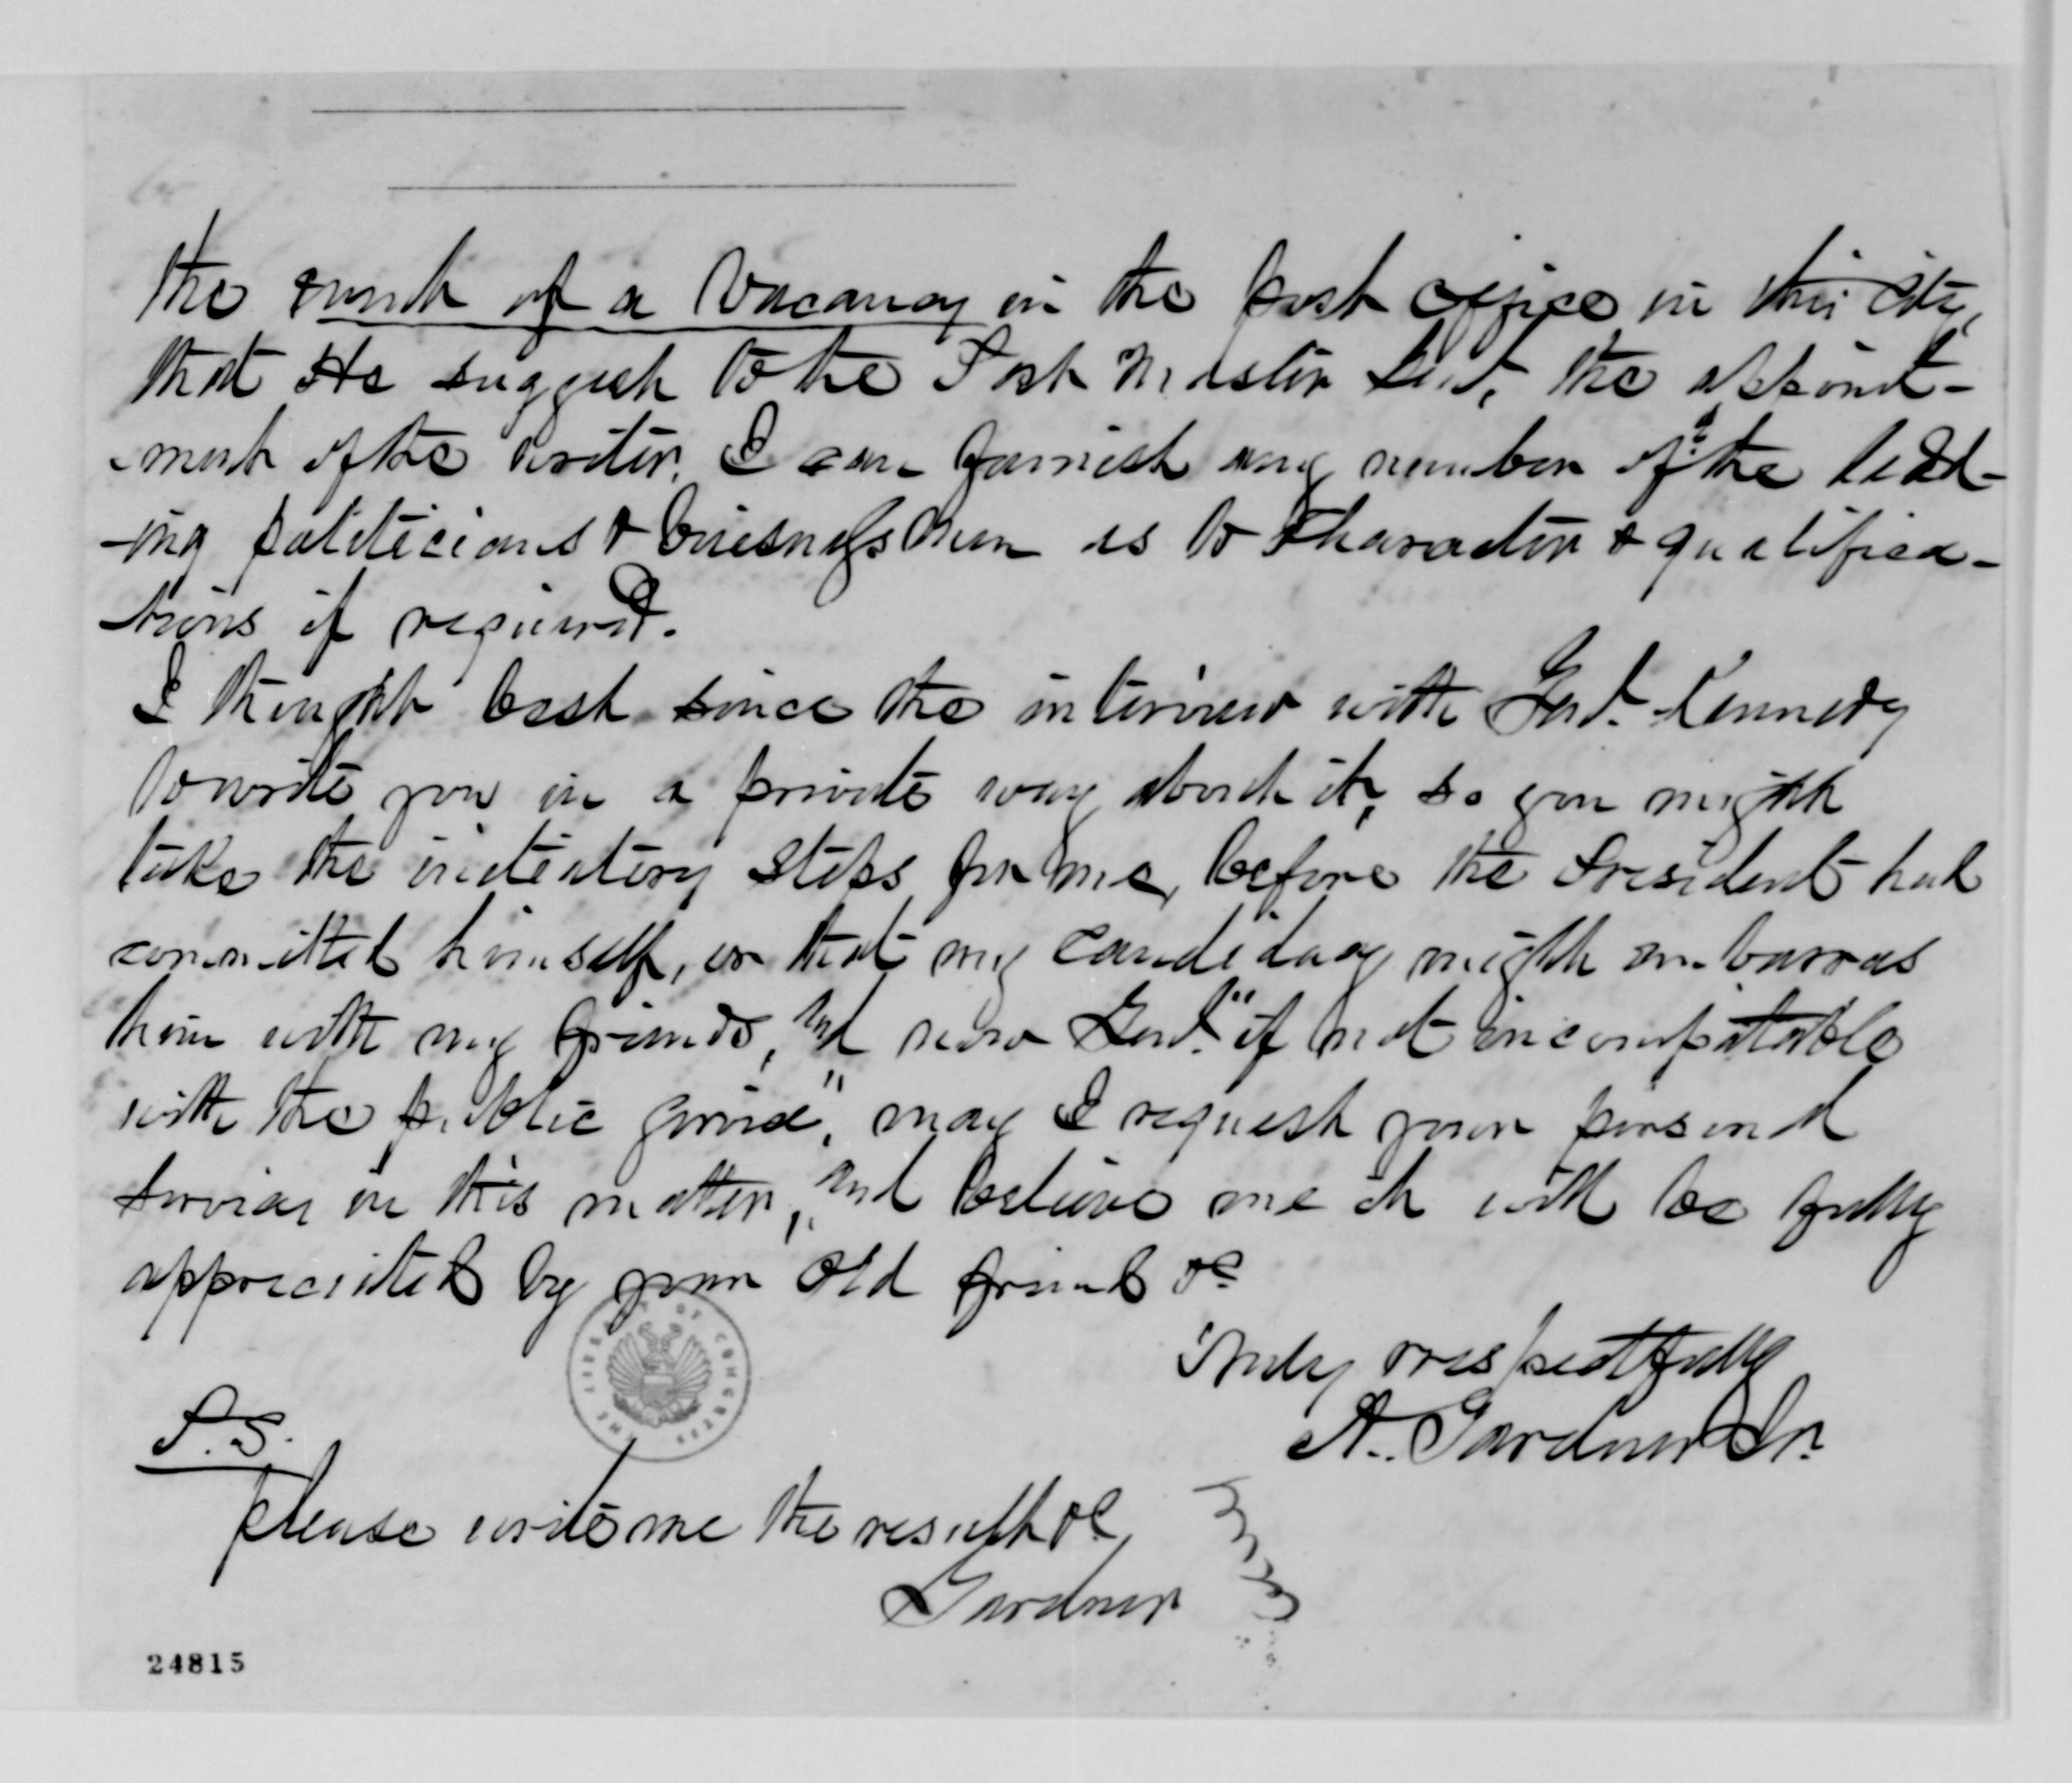 the event of a Vacancy in the post office in this City,
that He suggest to the Post Master Genl, the appoint-
-ment of the writer. I can furnish any number of the lead-
-ing politicians & buisness men as to Character & qualifica-
-tions if required.
I thought best since the interview with Genl. Kennedy
to write you in a private way about it, so you might
take the initiatory steps for me, before the President had
committed himself, or that my candidacy might embarras
him with my friends, and now Genl. "if not incompatable
with the public service", may I request your personal
services in this matter, and believe me it will be fully
appreciated by your old friend &c
Truly respectfully
A. Gardner Jr.
P.S.
please write me the result &c
Gardner
THE LIBRARY OF CONGRESS
24815